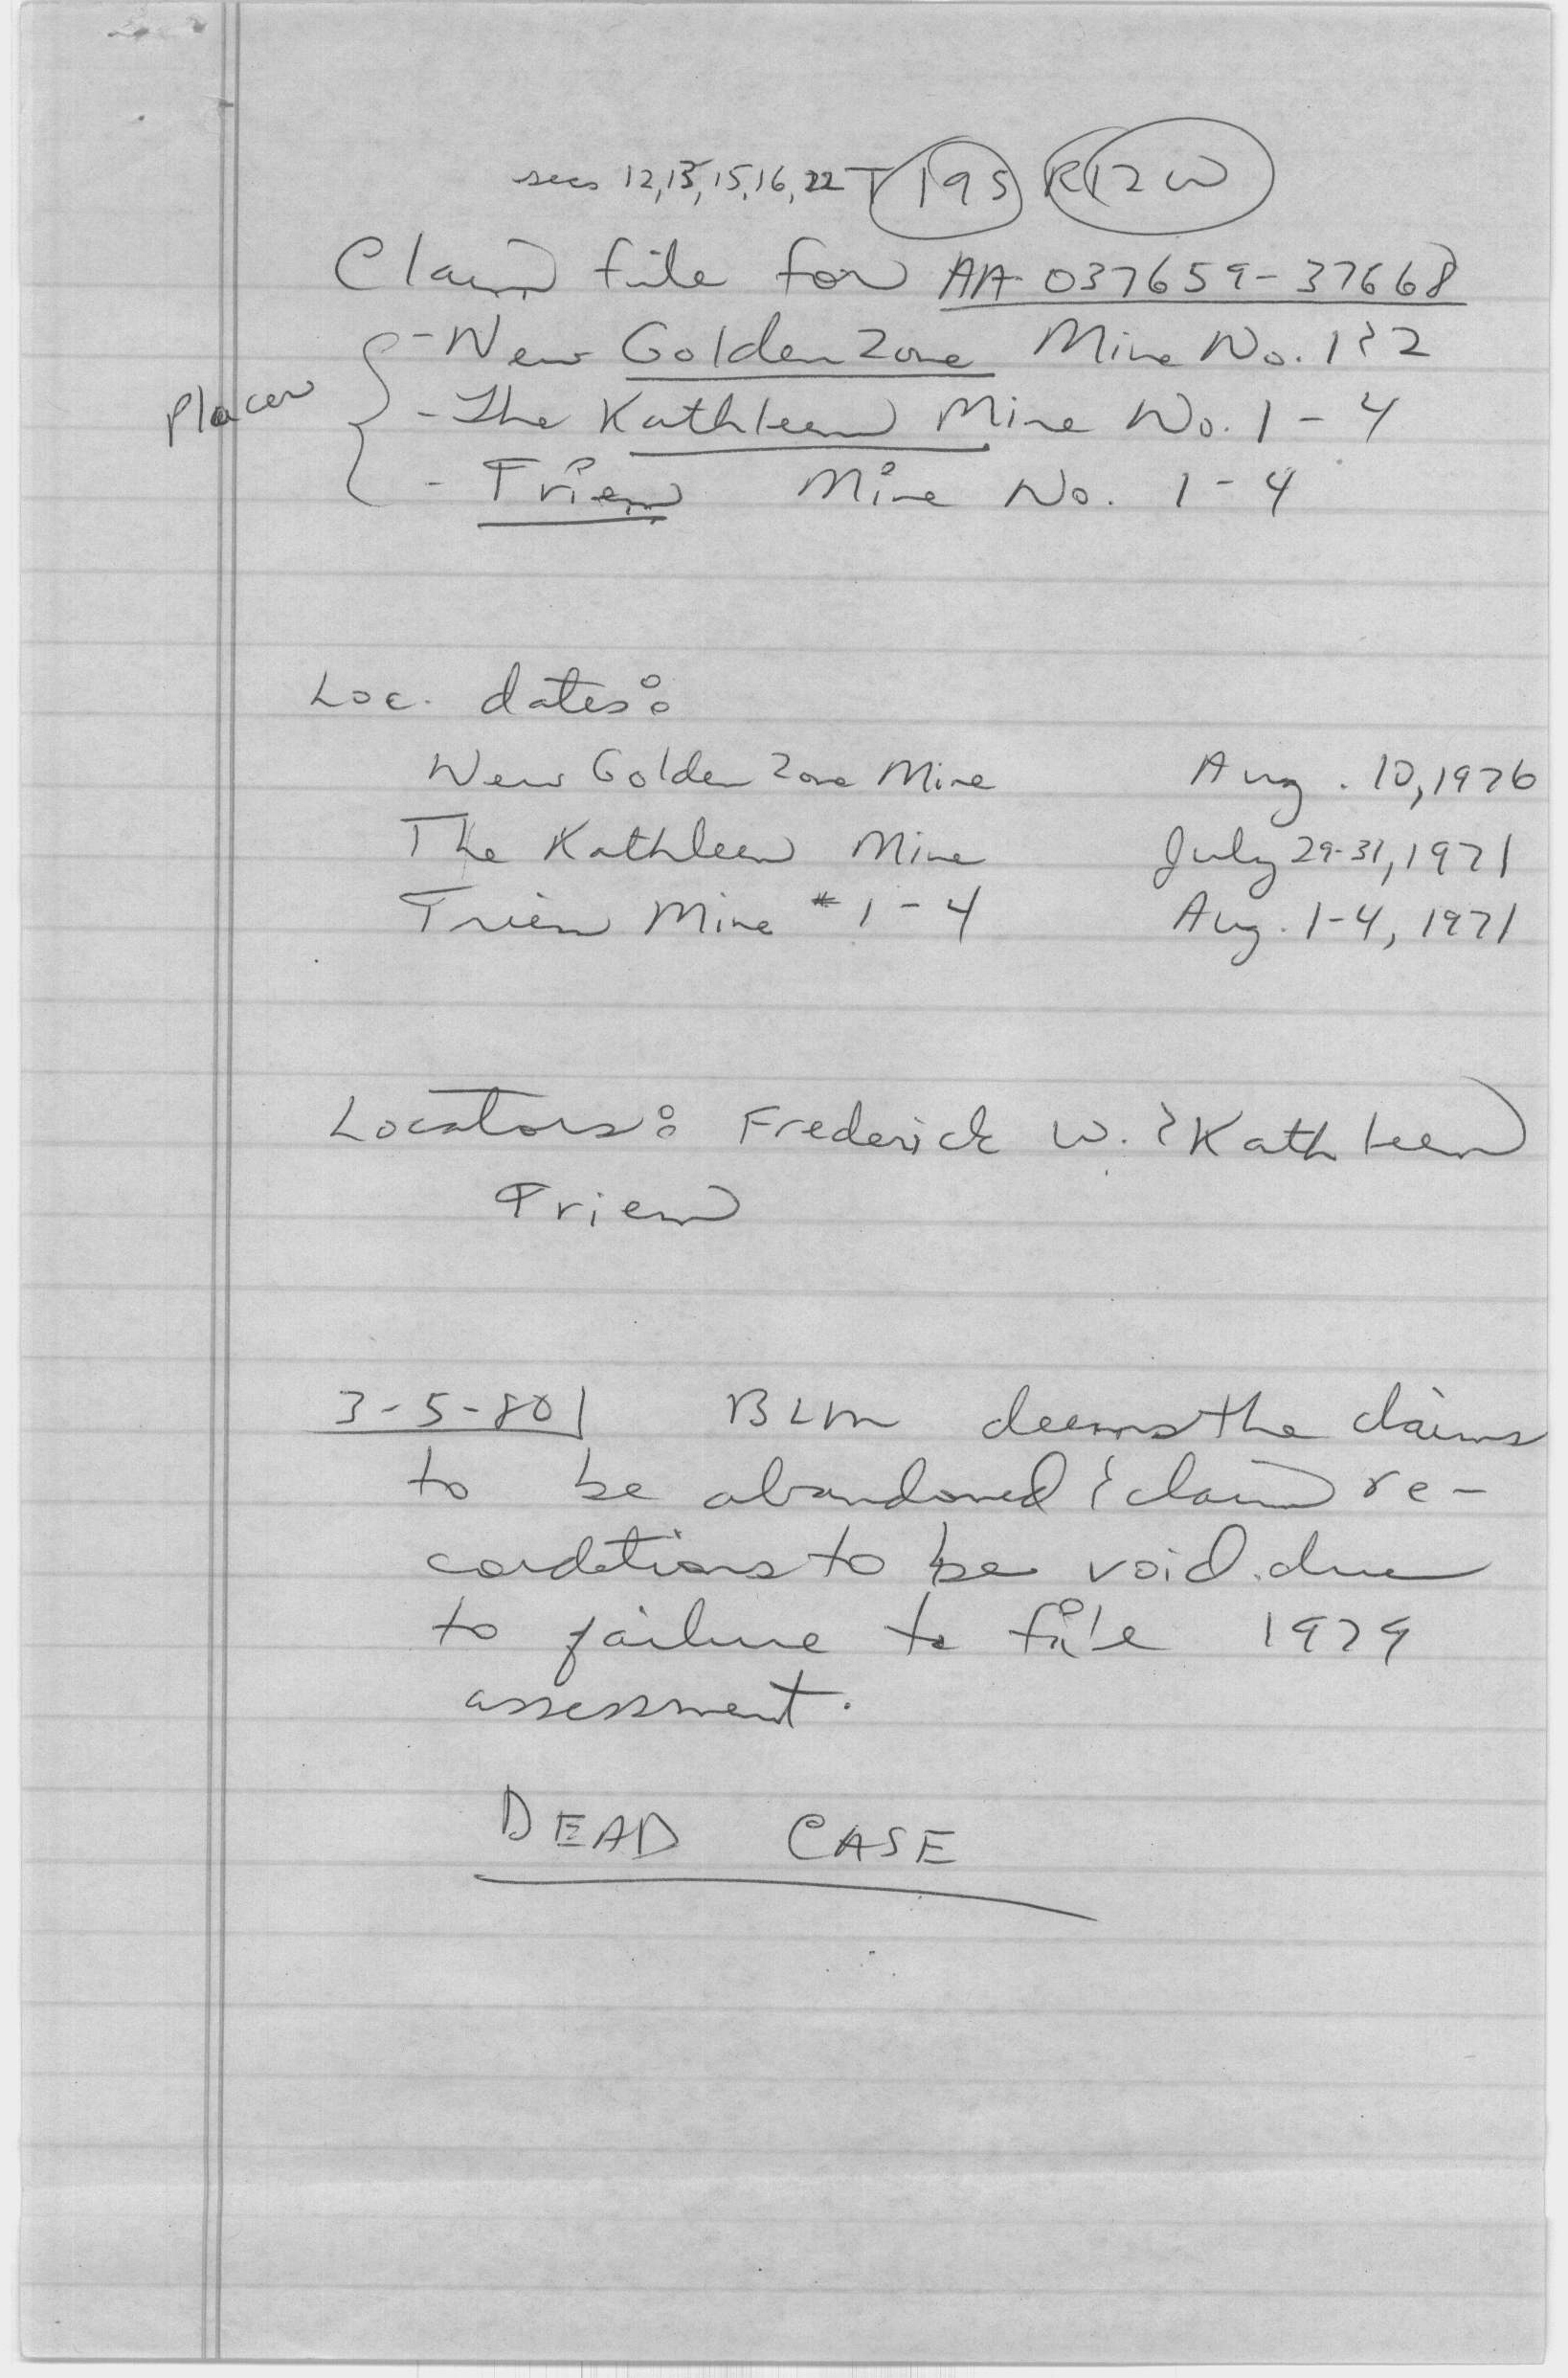 secs 12,13,15,16,22 T 19S R12W
Claim file for AA-037659-37668
Placer
- New Golden Zone Mine No. 1 & 2
- The Kathleen Mine No. 1-4
- Trien Mine No. 1-4
Loc. dates:
New Golden Zone Mine Aug. 10, 1976
The Kathleen Mine July 29-31, 1971
Trien Mine #1-4 Aug. 1-4, 1971
Locators: Frederick W. & Kathleen
Trien
3-5-80 BLM deems the claims
to be abandoned & claim re-
cordations to be void due
to failure to file 1979
assessment.
DEAD CASE